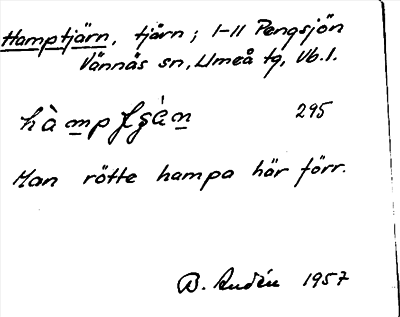 Hamptjärn, tjärn; I-II Pengsjön
Vännäs sn, Umeå tg, Vb.l.
295
Man rötte hampa här förr.
B. Audén 1957